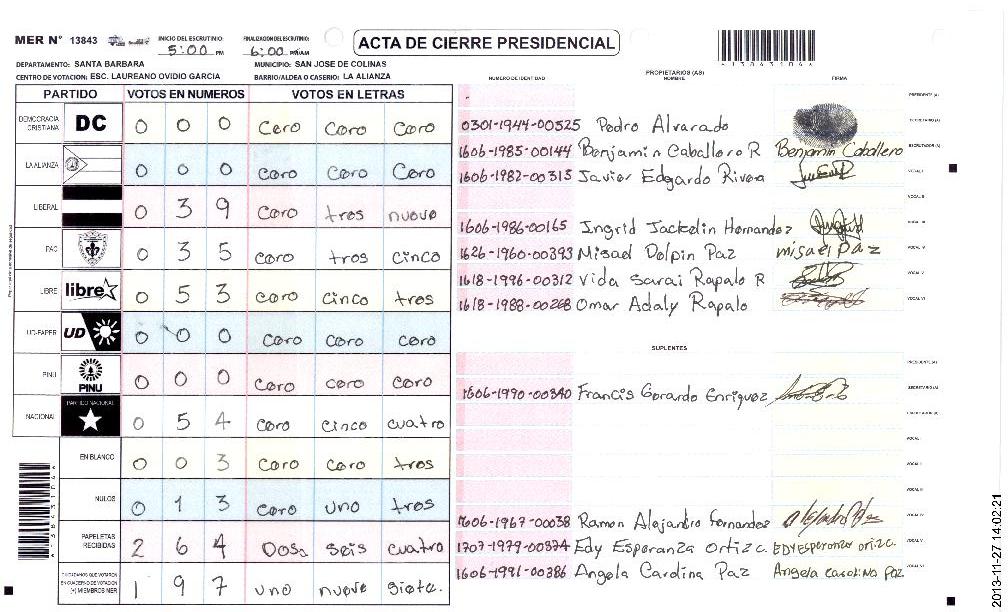 MER Nº 13843
INICIO DEL ESCRUTINIO: 5:00 PM
FINALIZACION DEL ESCRUTINIO: 6:00 PM/AM
ACTA DE CIERRE PRESIDENCIAL
DEPARTAMENTO: SANTA BARBARA
MUNICIPIO: SAN JOSE DE COLINAS
CENTRO DE VOTACION: ESC. LAUREANO OVIDIO GARCIA
BARRIO/ALDEA O CASERIO: LA ALIANZA
PARTIDO VOTOS EN NUMEROS VOTOS EN LETRAS
DEMOCRACIA CRISTIANA DC 0 0 0 Cero Cero Cero
LA ALIANZA 0 0 0 Cero Cero Cero
LIBERAL 0 3 9 Cero tres nueve
PAC 0 3 5 cero tres cinco
LIBRE libre 0 5 3 cero cinco tres
UD-FAPER UD 0 0 0 Cero cero cero
PINU PINU 0 0 0 Cero cero cero
NACIONAL PARTIDO NACIONAL 0 5 4 Cero Cinco cuatro
EN BLANCO 0 0 3 Cero Cero tres
NULOS 0 1 3 Cero uno tres
PAPELETAS RECIBIDAS 2 6 4 Dos seis cuatro
CIUDADANOS QUE VOTARON EN CUADERNO DE VOTACION (+) MIEMBROS MER 1 9 7 uno nueve siete.
PROPIETARIOS (AS)
NUMERO DE IDENTIDAD NOMBRE FIRMA
PRESIDENTE (A)
0301-1944-00525 Pedro Alvarado SECRETARIO (A)
1606-1985-00144 Benjamin Caballero R Benjamin Caballero ESCRUTADOR (A)
1606-1982-00315 Javier Edgardo Rivera VOCAL I
VOCAL II
1606-1986-00165 Ingrid Jackelin Hernandez VOCAL III
1626-1960-00393 Misael Delpin Paz misael paz VOCAL IV
1618-1996-00312 Vida Sarai Rapalo R VOCAL V
1618-1988-00268 Omar Adaly Rapalo VOCAL VI
SUPLENTES
PRESIDENTE (A)
1606-1990-00340 Francis Gerardo Enriquez SECRETARIO (A)
ESCRUTADOR (A)
VOCAL I
VOCAL II
VOCAL III
1606-1967-00038 Ramon Alejandro Fernandez VOCAL IV
1707-1979-00374 Edy Esperanza Ortiz c. EDY Esperanza ortiz c. VOCAL V
1606-1991-00386 Angela Carolina Paz Angela carolina paz VOCAL VI
2013-11-27 14:02:21